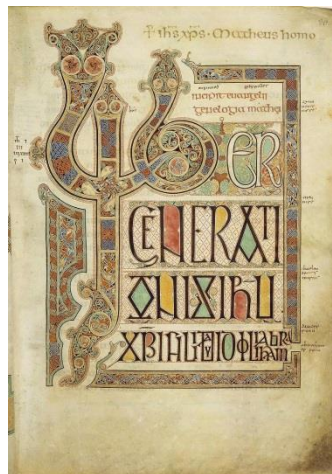 + ihs xps · Mattheus homo
incipit euangelii
genelogia mathei
LIBER
GENERATI
ONIS IHU
XPI FILII DAUID FILII ABRAHAM